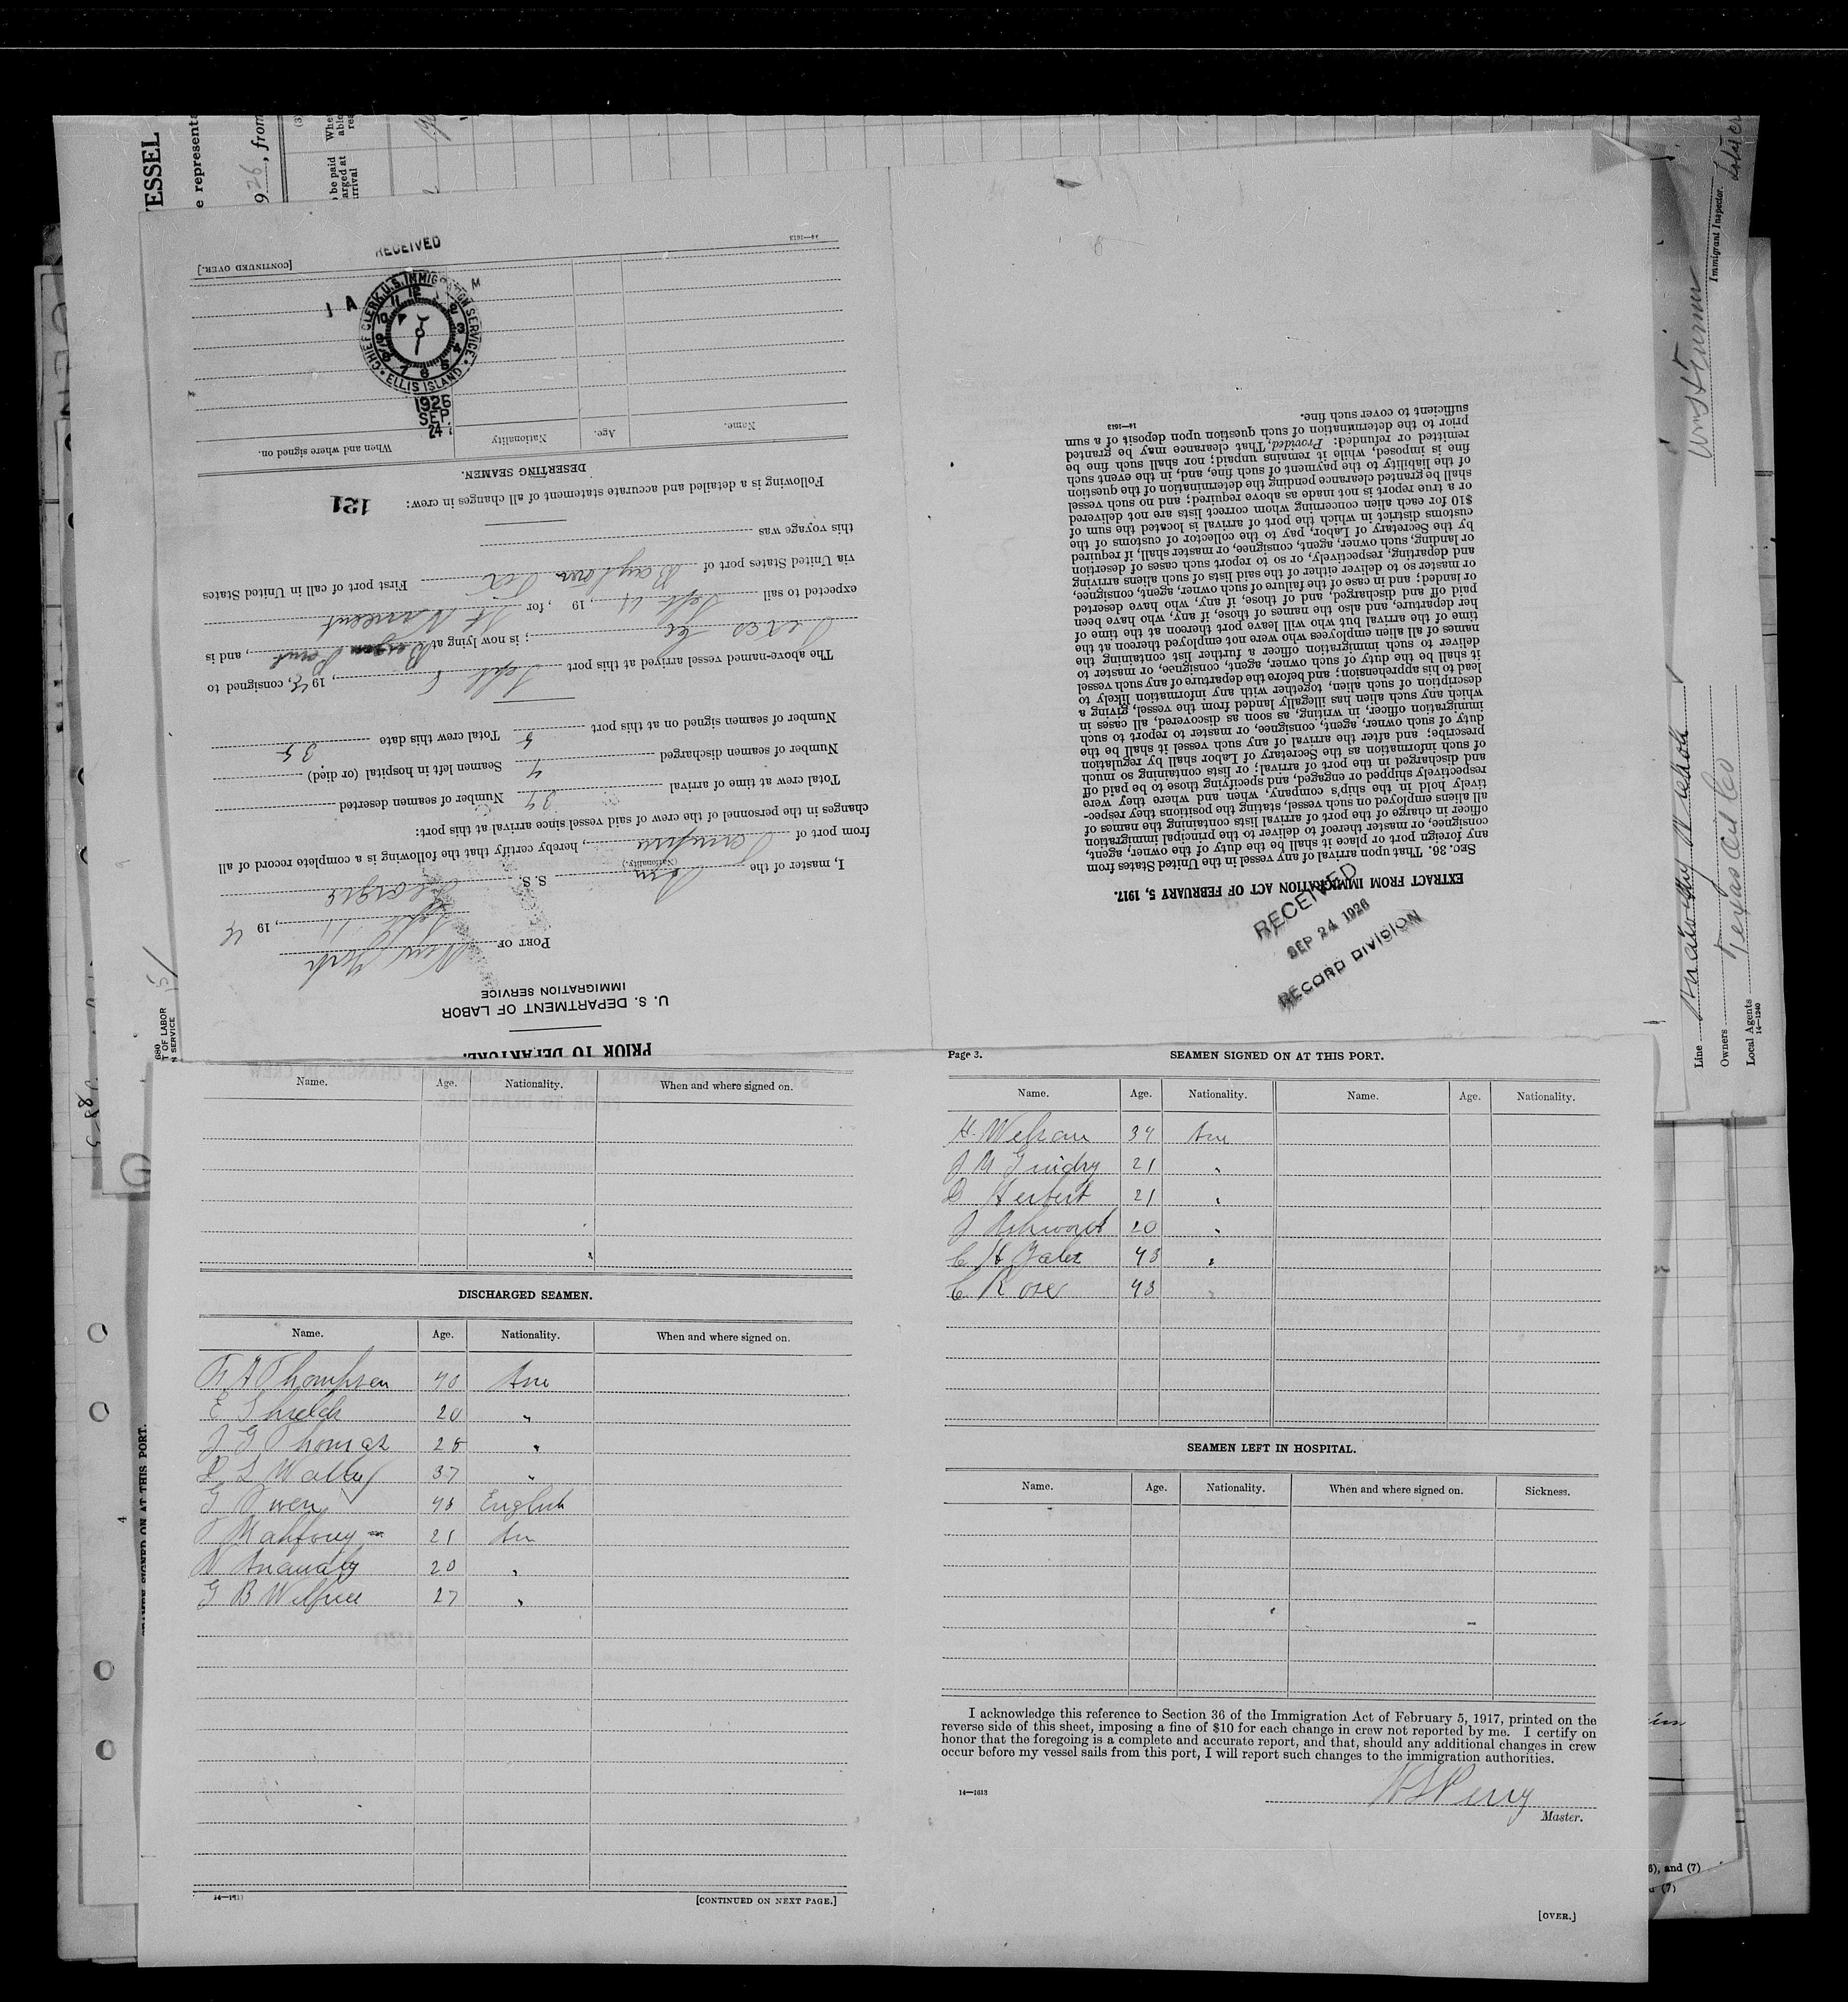 VESSEL
e representa
, from
Immigrant Inspector.
Line
Owners Texas Oil Co
Local Agents
14—1240
PRIOR TO DEPARTURE.
U. S. DEPARTMENT OF LABOR
IMMIGRATION SERVICE
PORT OF New York
Sept 11, 19
I, master of the Am S.S. Georgia
(Nationality.)
from port of Tampico, hereby certify that the following is a complete record of all
changes in the personnel of the crew of said vessel since arrival at this port:
Total crew at time of arrival Number of seamen deserted
Number of seamen discharged Seamen left in hospital (or died)
Number of seamen signed on at this port Total crew this date 35
The above-named vessel arrived at this port Sept, 19, consigned to
Texas Co; is now lying at Point, and is
expected to sail Sept 11, 19 , for St Vincent
via United States port of Baytown Tex First port of call in United States
this voyage was
Following is a detailed and accurate statement of all changes in crew:
121
DESERTING SEAMEN.
Name. Age. Nationality When and where signed on.
[CONTINUED OVER.]
14—1613
RECEIVED
CHIEF CLERK, U.S. IMMIGRATION SERVICE
ELLIS ISLAND
1926
SEP.
24
RECEIVED
SEP 24 1926
RECORD DIVISION
EXTRACT FROM IMMIGRATION ACT OF FEBRUARY 5, 1917.
SEC. 36. That upon arrival of any vessel in the United States from
any foreign port or place it shall be the duty of the owner, agent,
consignee, or master thereof to deliver to the principal immigration
officer in charge of the port of arrival lists containing the names of
all aliens employed on such vessel, stating the positions they respec-
tively hold in the ship's company, when and where they were
respectively shipped or engaged, and specifying those to be paid off
and discharged in the port of arrival; or lists containing so much
of such information as the Secretary of Labor shall by regulation
prescribe; and after the arrival of any such vessel it shall be the
duty of such owner, agent, consignee, or master to report to such
immigration officer, in writing, as soon as discovered, all cases in
which any such alien has illegally landed from the vessel, giving a
description of such alien, together with any information likely to
lead to his apprehension; and before the departure of any such vessel
it shall be the duty of such owner, agent, consignee, or master to
deliver to such immigration officer a further list containing the
names of all alien employees who were not employed thereon at the
time of the arrival but who will leave port thereon at the time of
her departure, and also the names of those, if any, who have been
paid off and discharged, and of those, if any, who have deserted
or landed; and in case of the failure of such owner, agent, consignee,
or master so to deliver either of the said lists of such aliens arriving
and departing, respectively, or so to report such cases of desertion
or landing, such owner, agent, consignee, or master shall, if required
by the Secretary of Labor, pay to the collector of customs of the
customs district in which the port of arrival is located the sum of
$10 for each alien concerning whom correct lists are not delivered
or a true report is not made as above required; and no such vessel
shall be granted clearance pending the determination of the question
of the liability to the payment of such fine, and, in the event such
fine is imposed, while it remains unpaid; nor shall such fine be
remitted or refunded: Provided, That clearance may be granted
prior to the determination of such question upon deposit of a sum
sufficient to cover such fine.
14—1613
Name. Age. Nationality. When and where signed on.
DISCHARGED SEAMEN.
Name. Age. Nationality. When and where signed on.
Thompson 40 Am
E Shields 20 "
J G Thomas 28 "
L Walley 37 "
G Owen 48 English
21 Am
20 "
G B 27 "
14—1613
[CONTINUED ON NEXT PAGE.]
Page 3.
SEAMEN SIGNED ON AT THIS PORT.
Name. Age. Nationality. Name. Age. Nationality.
H. Nelson 34 Am
J M Guidry 21 "
C Herbert 21 "
J Ashworth 20 "
C H 43 "
C Rose 43 "
SEAMEN LEFT IN HOSPITAL.
Name. Age. Nationality. When and where signed on. Sickness.
I acknowledge this reference to Section 36 of the Immigration Act of February 5, 1917, printed on the
reverse side of this sheet, imposing a fine of $10 for each change in crew not reported by me. I certify on
honor that the foregoing is a complete and accurate report, and that, should any additional changes in crew
occur before my vessel sails from this port, I will report such changes to the immigration authorities.
Perry
Master.
14—1613
[OVER.]